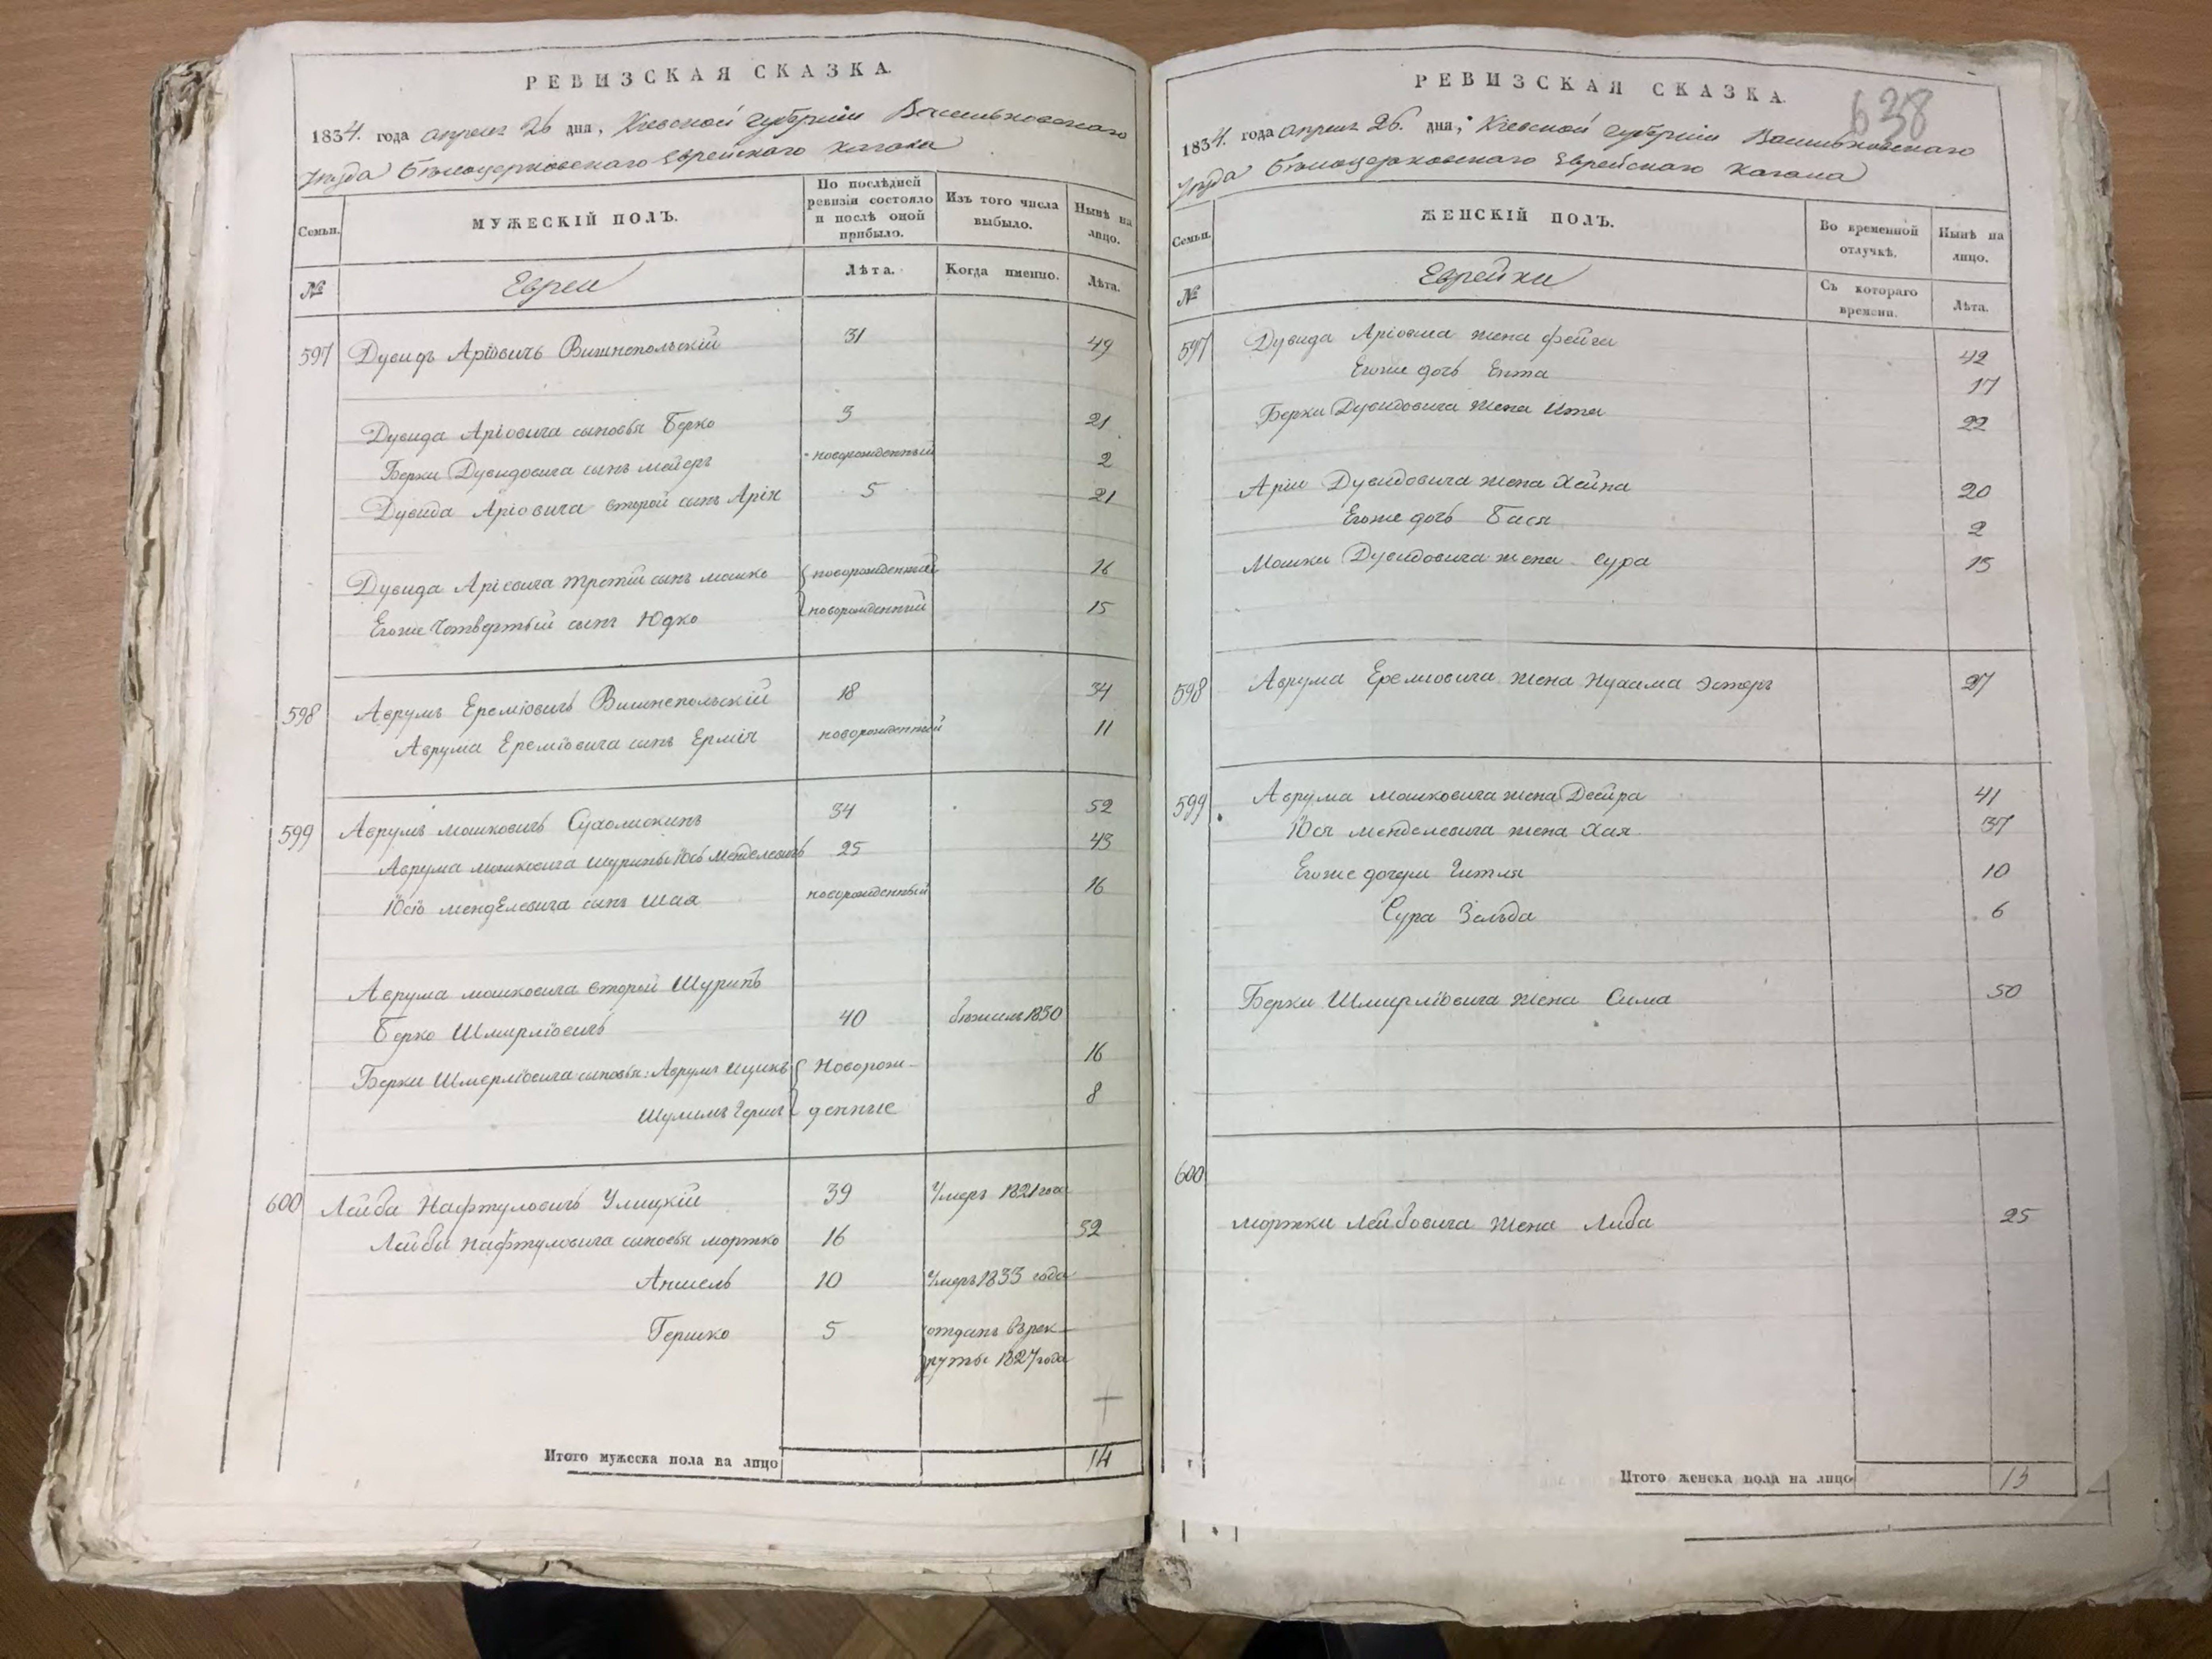 РЕВИЗСКАЯ СКАЗКА.
1834. года апреля 26 дня, Кіевской губерніи Васильковского
уезда Белоцерковского Еврейского кагала
Семьи.
МУЖЕСКІЙ ПОЛЪ.
По послѣдней ревизіи состояло и послѣ оной прибыло.
Изъ того числа выбыло.
Нынѣ на лицо.
№
Евреи
Лѣта.
Когда именно.
Лѣта.
597 Дувидъ Аріовичъ Вишнепольскій 31 49
Дувида Аріовича сыновья Берко 3 21
Берки Дувидовича сынъ мейеръ новорожденный 2
Дувида Аріовича второй сынъ Арія 5 21
Дувида Аріевича третій сынъ мошко новорожденный 16
Егоже Четвертый сынъ Юдко новорожденный 15
598 Аврумъ Ереміовичъ Вишнепольскій 18 34
Аврума Ереміовича сынъ Ермія новорожденный 11
599 Аврумъ мошковичъ Сухолискинъ 34 52
Аврума мошковича шуринъ Юсь менделевичъ 25 43
Юсіо менделевича сынъ шая новорожденный 16
Аврума мошковича второй Шуринъ
Берко Шмирліовичъ 40 бежалъ 1830
Берки Шмерліовича сыновья: Аврумъ ицикъ Новорож- 16
Шулимъ Герш денные 8
600 Лейба Нафтуловичъ Улицкій 39 Умеръ 1821 года
Лейбы Нафтуловича сыновья моржко 16 32
Аншель 10 Умеръ 1833 года
Гершко 5 отданъ въ рек-
руты 1827 года
Итого мужеска пола на лицо 14
638
РЕВИЗСКАЯ СКАЗКА.
1834. года апреля 26. дня, Кіевской губерніи Васильковского
уезда Белоцерковского Еврейского кагала
Семьи.
ЖЕНСКІЙ ПОЛЪ.
Во временной отлучкѣ.
Нынѣ на лицо.
№
Еврейки
Съ котораго времени.
Лѣта.
597 Дувида Аріовича жена фейга 42
Егоже дочь Ента 17
Берки Дувидовича жена ита 22
Аріи Дувидовича жена Хейна 20
Егоже дочь Бася 2
Мошки Дувидовича жена сура 15
598 Аврума Ереміовича жена Нухама Эстеръ 27
599 Аврума мошковича жена Двейра 41
Юся менделевича жена Хая 37
Егоже дочери Гитля 10
Сура Зельда 6
Берки Шмирліовича жена Сима 50
600
моржки Лейбовича жена Либа 25
Итого женска пола на лицо 13